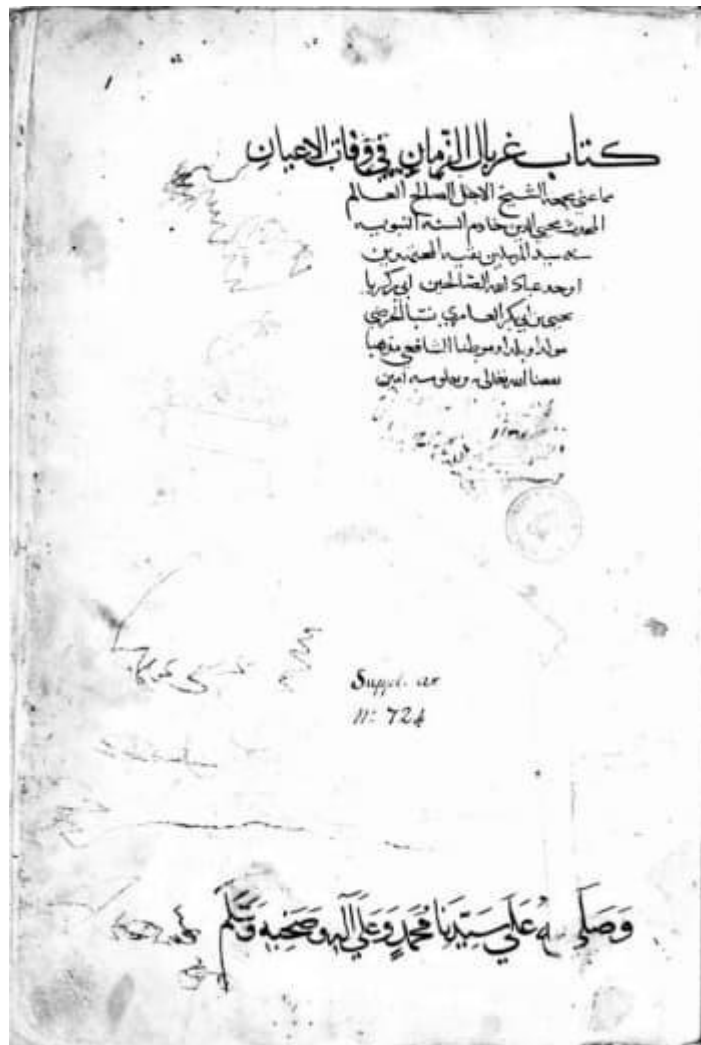 كتاب غربال الزمان في وفيات الاعيان
مما عني بجمعه الشيخ الاجل الصالح العالم
المحدث محيي الدين خادم السنه النبويه
سنه سيد المرسلين بقيه المجتهدين
اوحد عباد الله الصالحين ابي زكريا
يحيى بن ابي بكر العامري نسبا الحرضي
مولدا وبلدا وموطنا الشافعي مذهبا
نفعنا الله تعالى به وبعلومه امين
Suppl. ar
N° 724
وَصَلَى عَلَي سَيّدِنَا مُحَمَدٍ وَعَلَي آلِهِ وَصَحْبِهِ وَسَلَم